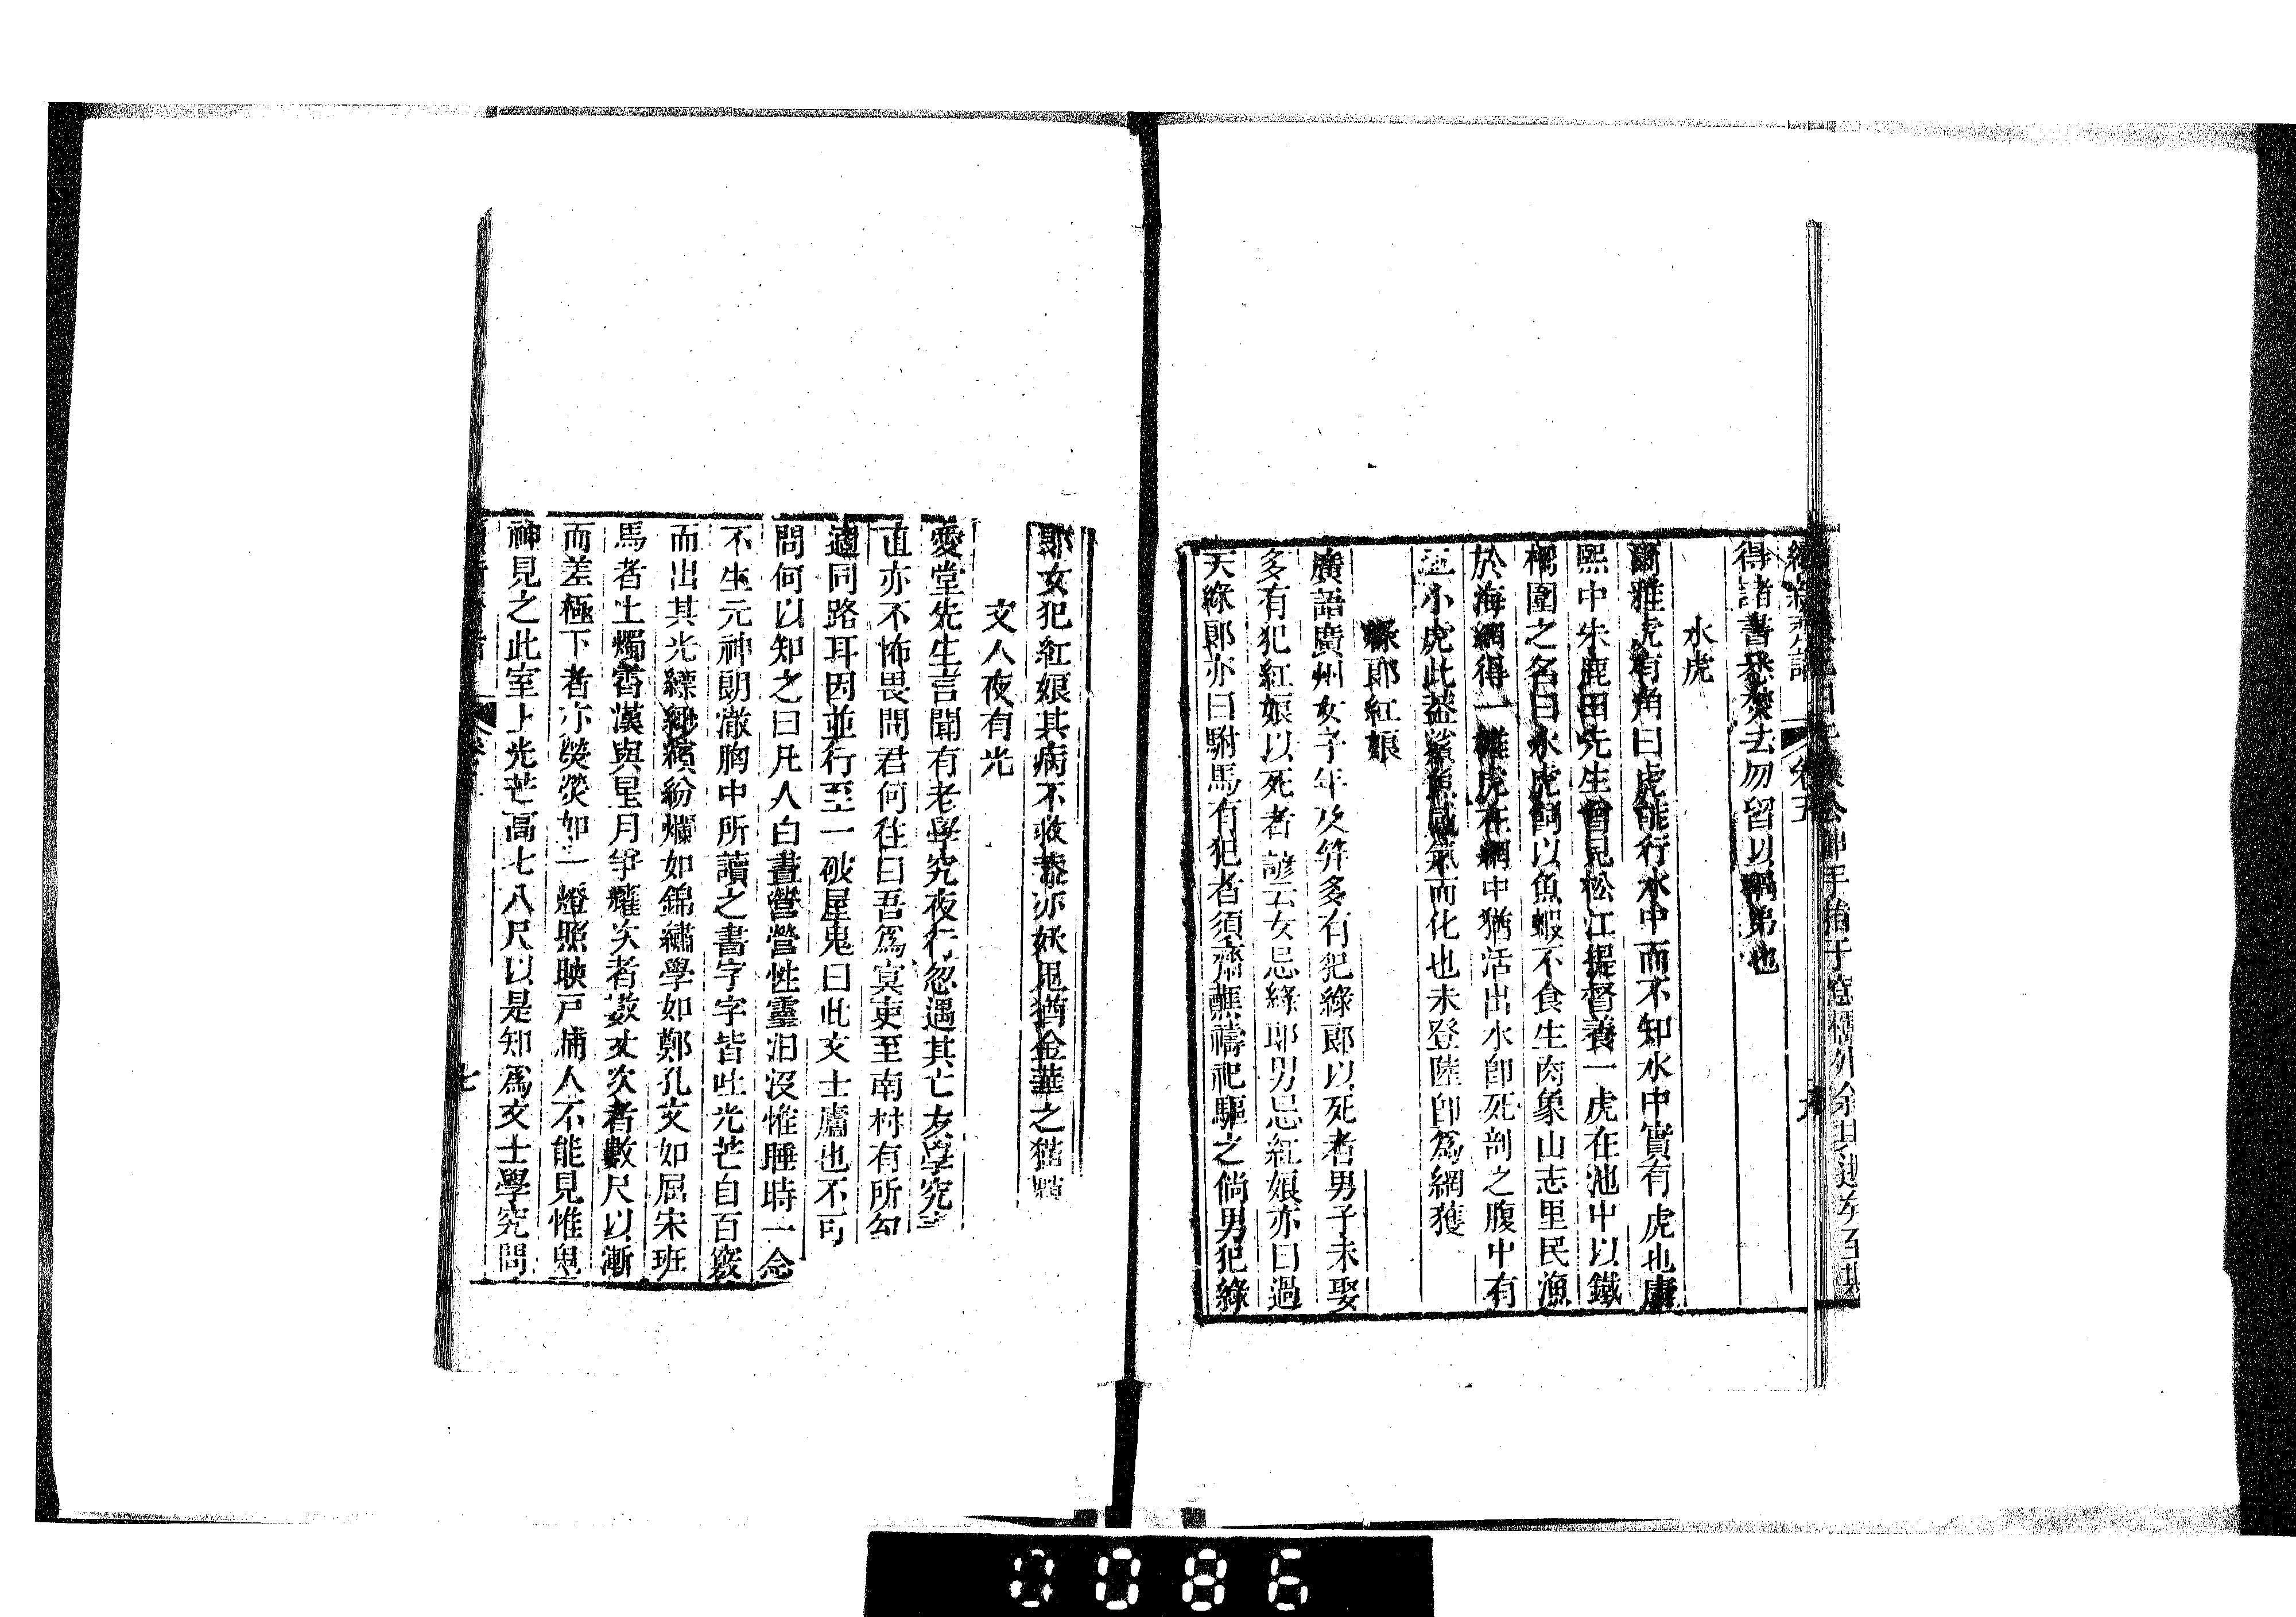 得諸書悉焚去勿留以禍弟也
水虎
爾雅虎有角曰虒能行水中而不知水中實有虎也康
熙中朱鹿田先生曾見松江提督養一虎在池中以鐵
柵圍之名曰水虎飼以魚蝦不食生肉象山志里民漁
於海網得一雌虎在網中猶活出水卽死剖之腹中有
三小虎此蓋鯊魚感氣而化也未登陸卽爲網獲
綠郞紅娘
廣語廣州女子年及笄多有犯綠郞以死者男子未娶
多有犯紅娘以死者諺云女忌綠郞男忌紅娘亦曰過
天綠郞亦曰駙馬有犯者須齋醮禱祀驅之倘男犯綠
郞女犯紅娘其病不救恭亦妖鬼猶金華之猫
文人夜有光
愛堂先生言聞有老學究夜行忽遇其亡友學究素
直亦不怖畏問君何往曰吾爲冥吏至南村有所勾
適同路耳因並行至一破屋鬼曰此文士廬也不可
問何以知之曰凡人白晝營營性靈汨沒惟睡時一念
不生元神朗澈胸中所讀之書字字皆吐光芒自百竅
而出其光縹緲繽紛爛如錦繡學如鄭孔文如屈宋班
馬者上燭霄漢與星月爭耀次者數丈次者數尺以漸
而差極下者亦熒熒如一燈照映戸牖人不能見惟鬼
神見之此室上光芒高七八尺以是知爲文士學究問
七